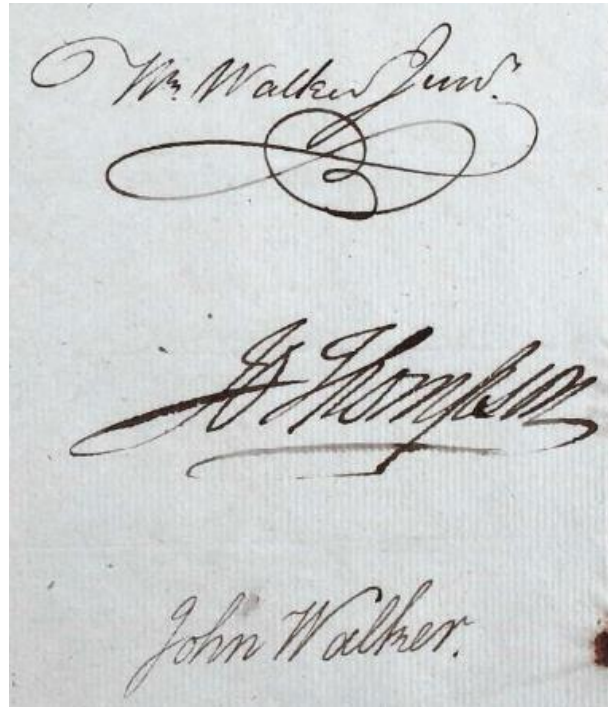 Wm Walker Junr.
Thompson
John Walker.